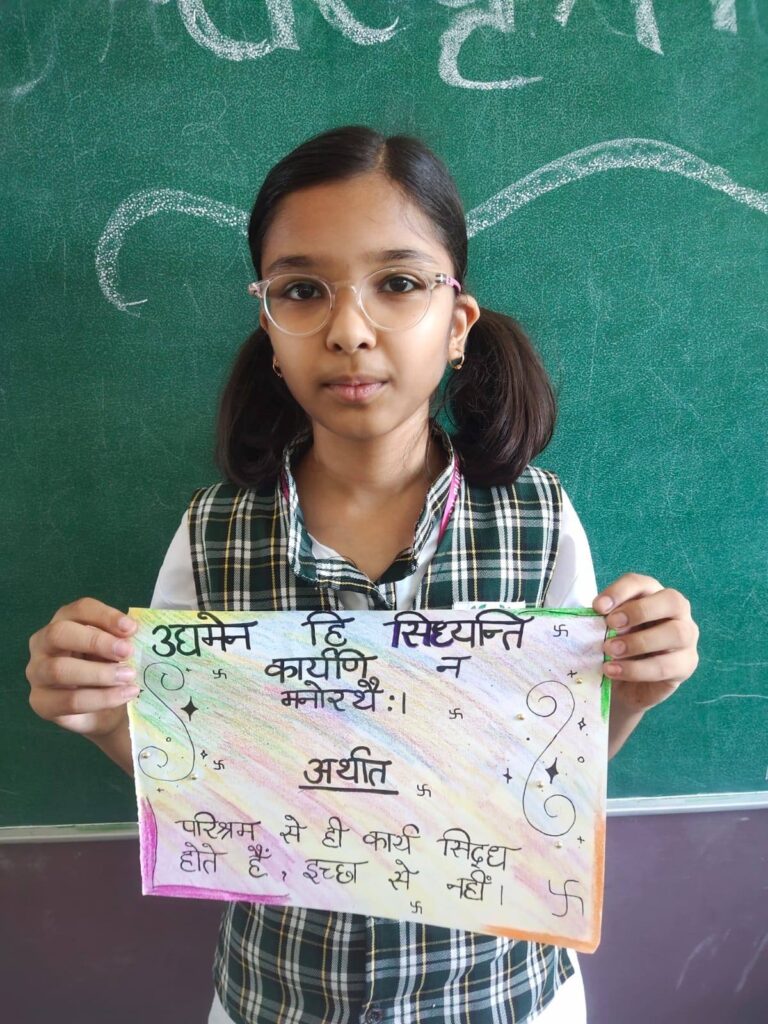 उद्यमेन हि सिध्यन्ति
कार्याणि न
मनोरथैः।
अर्थात
परिश्रम से ही कार्य सिद्ध
होते हैं, इच्छा से नहीं।